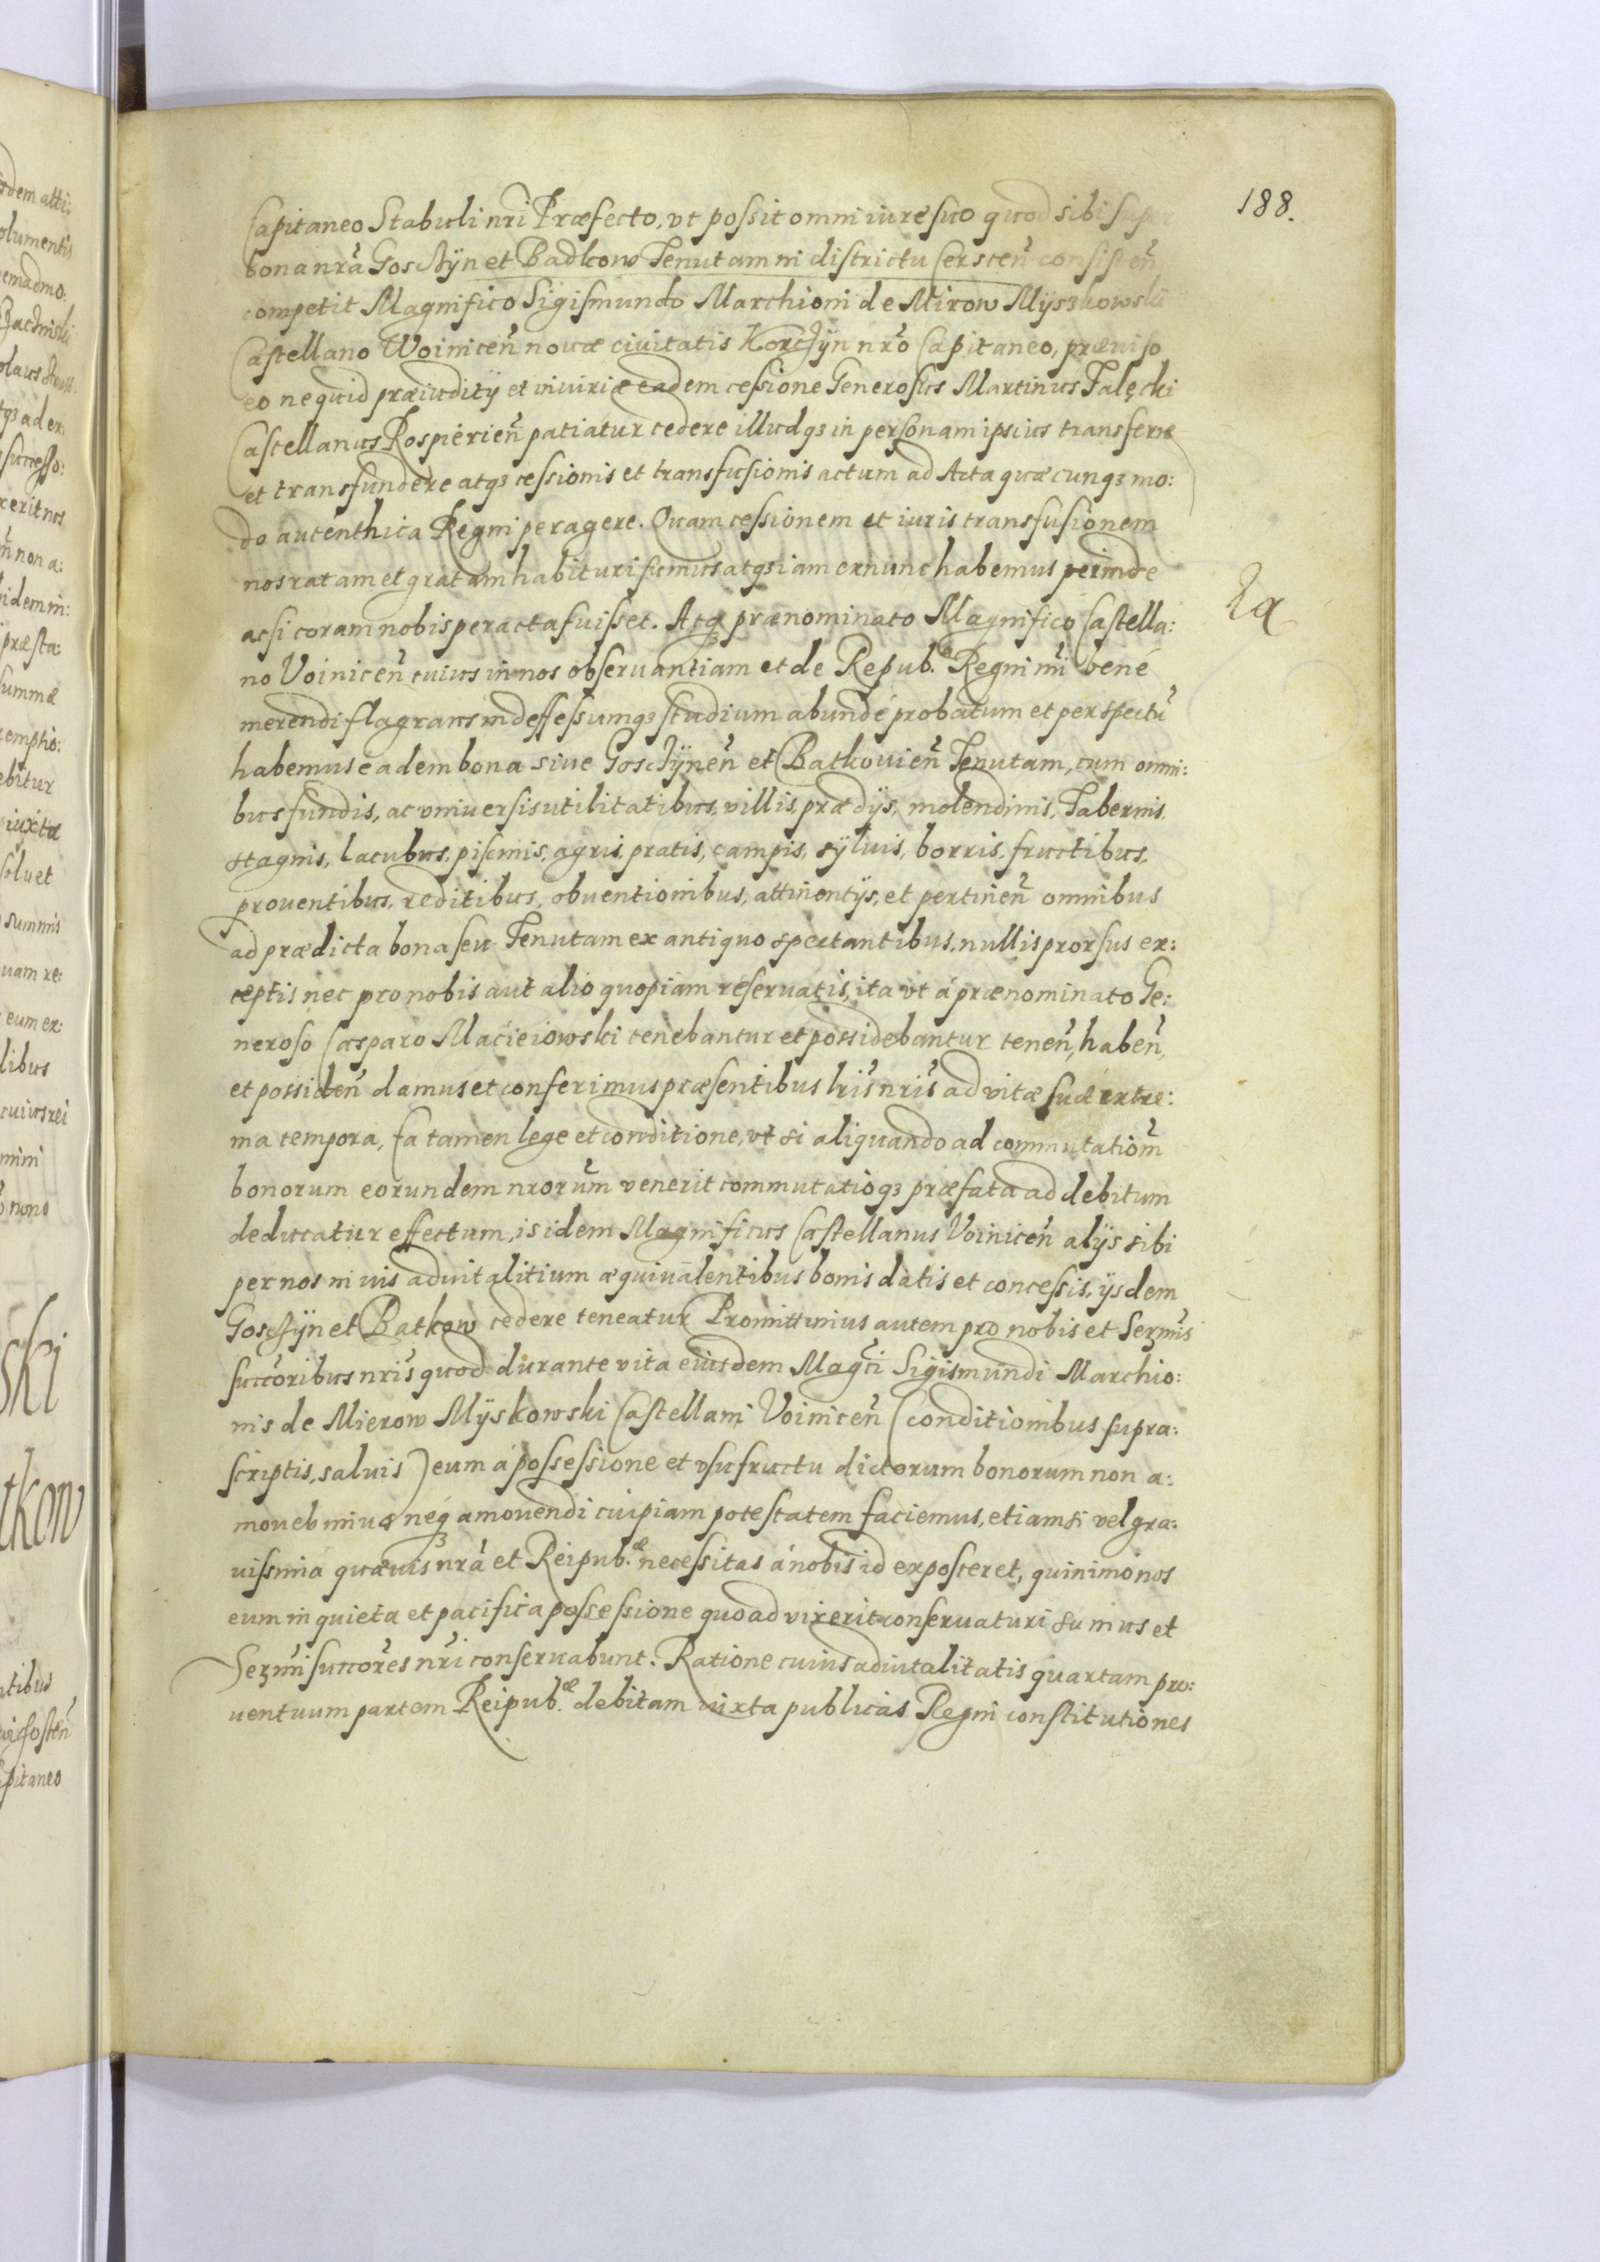 188.
Capitaneo Stabuli nri Præfecto, vt possit omni iure suo quod sibi super
bona nrã Goschÿn et Badkow Tenutam in districtu Cerscen̄ consisten̄
competit Magnifico Sigismundo Marchioni de Mirow Mÿszkowski
Castellano Woinicen̄ nouæ ciuitatis Korchÿn nrõ Capitaneo, præuiso
eo ne quid præiudity et iniuriæ eadem cessione Generosus Martinus Falęcki
Castellanus Rospierien̄ patiatur cedere illudqз in personam ipsius transferre
et transfundere atqз cessionis et transfusionis actum ad Acta quæcunqз mo:
do autenthica Regni peragere. Quam cessionem et iuris transfusionem
nos ratam et gratam habituri sumus atqз iam ex nunc habemus perinde
acsi coram nobis peracta fuisset. Atqз prænominato Magnifico Castella:
no Voinicen̄ cuius in nos obseruantiam et de Repub.ᵃ Regni nri bene
merendi flagrans indeffessumqз studium abundé probatum et perspectū
habemus eadem bona siue Goschÿnen̄ et Batkouien̄ Tenutam, cum omni:
bus fundis, ac vniuersis utilitatibus, villis, prædÿs, molendinis, Tabernis,
stagnis, lacubus, piscinis, agris, pratis, campis, sÿluis, borris, fructibus,
prouentibus, reditibus, obuentionibus, attinentÿs, et pertinen̄ omnibus
ad prædicta bona seu Tenutam ex antiquo spectantibus, nullis prorsus ex:
ceptis nec pro nobis aut alio quopiam reseruatis, ita vt á prænominato Ge:
neroso Casparo Macieiowski tenebantur et possidebantur tenen̄, haben̄,
et possiden̄ damus et conferimus præsentibus lris nris ad vitæ suæ extre:
ma tempora, Ea tamen lege et conditione, vt si aliquando ad commutatiom̄
bonorum eorundem nrorum venerit commutatioqз præfata ad debitum
deducatur effectum, is idem Magnificus Castellanus Voinicen̄ alÿs sibi
per nos in vis aduitalitium æquiualentibus bonis datis et concessis, ÿsdem
Goschÿn et Batkow cedere teneatur Promittimus autem pro nobis et Serm̄is
succoribus nris quod durante vita eiusdem Magci Sigismundi Marchio:
nis de Mierow Mÿskowski Castellani Voinicen̄ (conditionibus supra:
scriptis, saluis) eum á possessione et vsufructu dictorum bonorum non a:
mouebimus neqз amouendi cuipiam potestatem faciemus, etiamsi vel gra:
uissima quæuis nrã et Reipub.æ necessitas á nobis id exposceret, quinimo nos
eum in quieta et pacifica possessione quoad vixerit conseruaturi sumus et
Serm̄i succores nri conseruabunt. Ratione cuius aduitalitatis quartam pro:
uentuum partem Reipub.æ debitam iuxta publicas Regni constitutiones